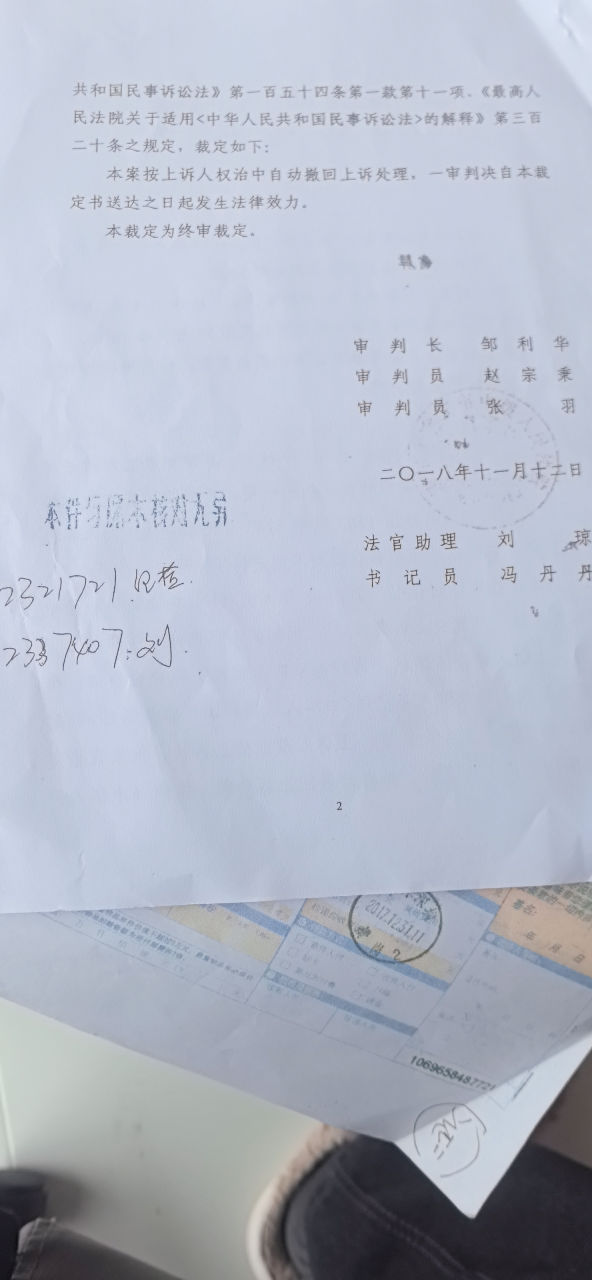 共和国民事诉讼法》第一百五十四条第一款第十一项、《最高人
民法院关于适用<中华人民共和国民事诉讼法>的解释》第三百
二十条之规定，裁定如下：
本案按上诉人权治中自动撤回上诉处理，一审判决自本裁
定书送达之日起发生法律效力。
本裁定为终审裁定。
审判长 邹利华
审判员 赵宗秉
审判员 张羽
二〇一八年十一月十二日
本件与原本核对无异
法官助理 刘琼
书记员 冯丹丹
2321721
2337407:刘.
2
2017.12.31.11
签名:
年 月 日
1069658487721